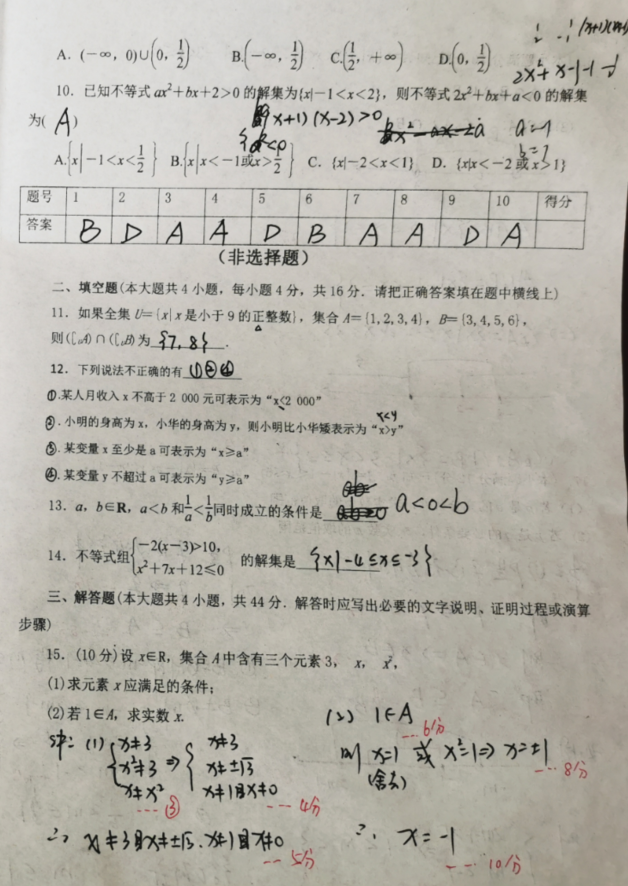 A. (-∞, 0)∪(0, 1/2) B. (-∞, 1/2) C. (1/2, +∞) D. (0, 1/2)
2x²+x-1
10. 已知不等式 ax²+bx+2>0 的解集为{x|-1<x<2}, 则不等式 2x²+bx+a<0 的解集
为( A )
(x+1)(x-2)>0
a<0
a=-1
b=1
A.{x|-1<x<1/2} B.{x|x<-1或x>1/2} C. {x|-2<x<1} D. {x|x<-2或x>1}
题号 1 2 3 4 5 6 7 8 9 10 得分
答案 B D A A D B A A D A
(非选择题)
二、填空题(本大题共4小题, 每小题4分, 共16分. 请把正确答案填在题中横线上)
11. 如果全集 U={x|x是小于9的正整数}, 集合 A={1,2,3,4}, B={3,4,5,6},
则(∁ᵤA)∩(∁ᵤB)为 {7,8}.
12. 下列说法不正确的有 ①②④
①.某人月收入 x 不高于 2 000 元可表示为“x<2 000”
x<y
②.小明的身高为 x, 小华的身高为 y, 则小明比小华矮表示为“x>y”
③.某变量 x 至少是 a 可表示为“x≥a”
④.某变量 y 不超过 a 可表示为“y≥a”
13. a, b∈R, a<b 和 1/a<1/b 同时成立的条件是 a<0<b
14. 不等式组{-2(x-3)>10, x²+7x+12≤0 的解集是 {x|-4≤x≤-3}
三、解答题(本大题共4小题, 共44分. 解答时应写出必要的文字说明、证明过程或演算
步骤)
15. (10分)设 x∈R, 集合 A 中含有三个元素 3, x, x²,
(1)求元素 x 应满足的条件;
(2)若 1∈A, 求实数 x.
解: (1) {x≠3 x²≠3 x≠x² ⇒ {x≠3 x≠±√3 x≠1且x≠0
--- ③ --- 4分
∴ x≠3且x≠±√3、x≠1且x≠0
--- 5分
(2) 1∈A
--- 6分
则 x=1 或 x²=1⇒x=±1
(舍去)
--- 8分
∴ x=-1
--- 10分